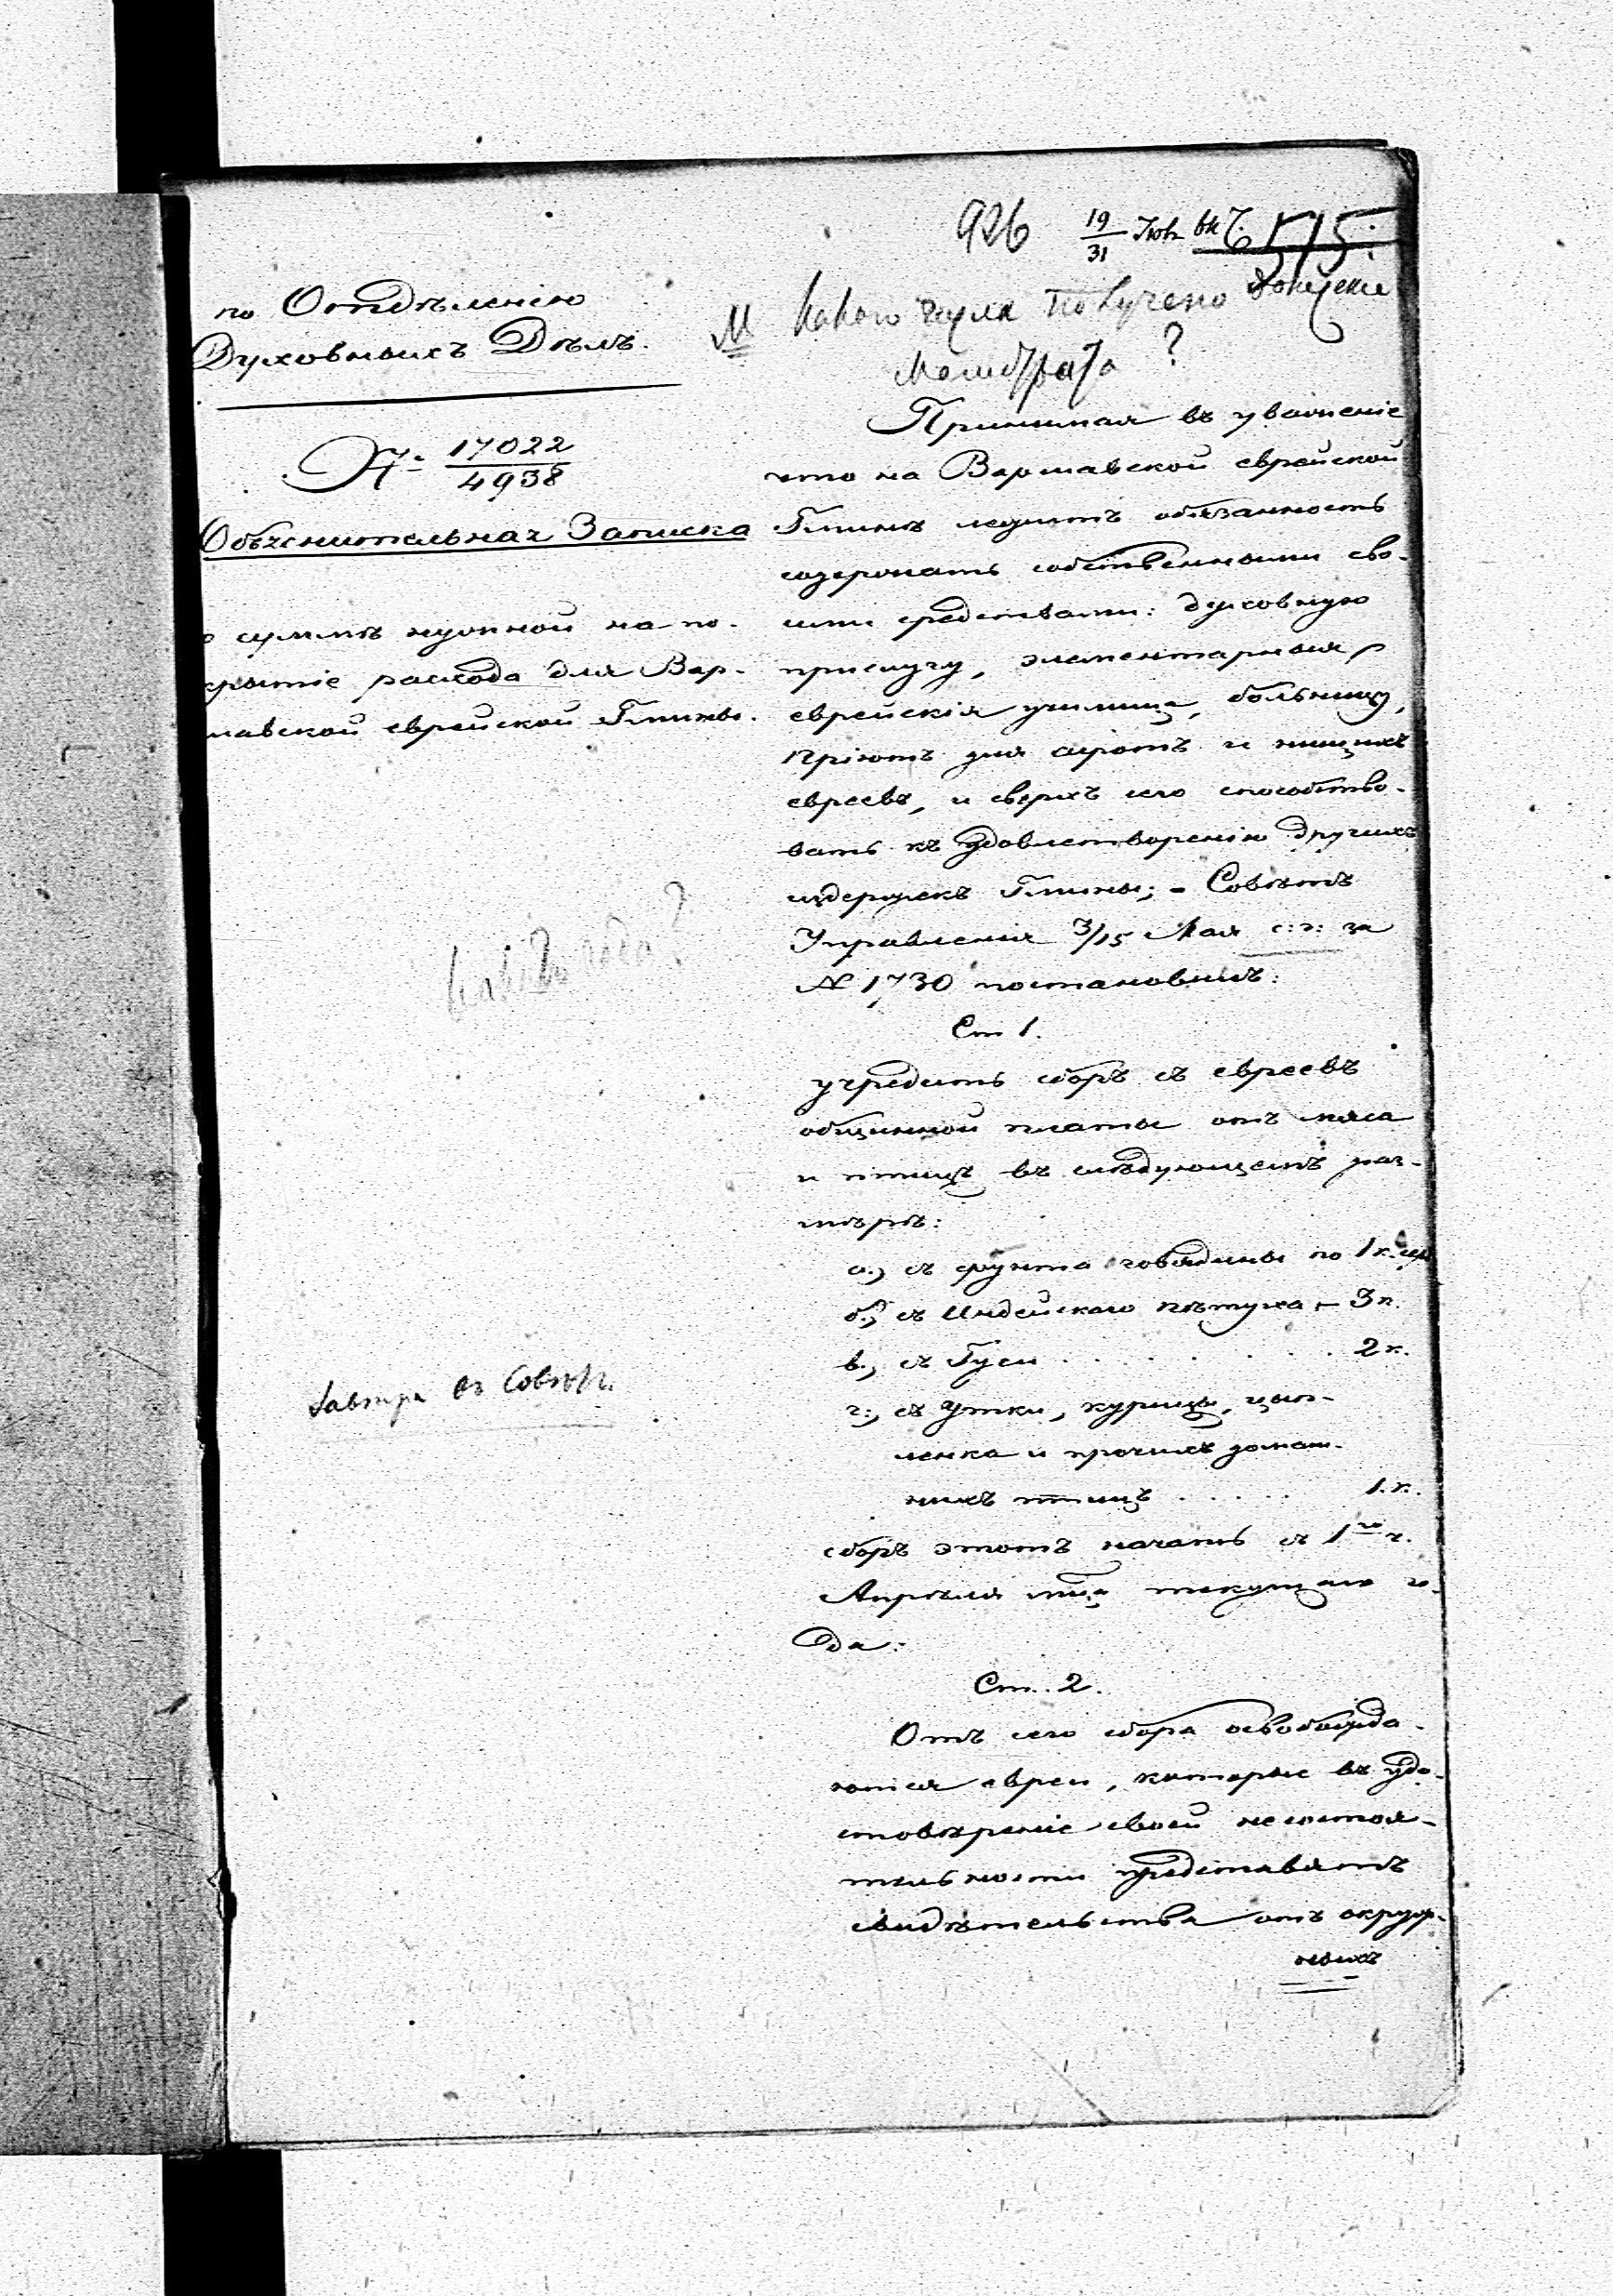 926 19/31 Іюля 515.
№ Какого числа получено донесеніе
Магистрата ?
по Отдѣленію
Духовныхъ Дѣлъ.
№ 17022/4938
Объяснительная Записка
о суммѣ нужной на по-
крытіе расхода для Вар-
шавской еврейской Гмины.
Какого года?
Завтра въ Совѣтъ.
Принимая въ уваженіе
что на Варшавской еврейской
Гминѣ лежитъ обязанность
содержать собственными сво-
ими средствами: духовную
прислугу, элементарныя
еврейскія училища, больницу,
пріютъ для сиротъ и нищихъ
евреевъ, и сверхъ сего способство-
вать къ удовлетворенію другихъ
издержекъ Гмины; - Совѣтъ
Управленія 3/15 Мая с: г: за
№ 1730 постановилъ:
Ст 1.
учредить сборъ съ евреевъ
общинной платы отъ мяса
и птицъ въ слѣдующемъ раз-
мѣрѣ:
а., съ фунта говядины по 1 к. сер.
б., съ Индейскаго пѣтуха - 3 к.
в., съ Гуси . . . . . . . 2 к.
г:, съ Утки, курицы, цып-
ленка и прочихъ домаш-
нихъ птицъ . . . . . 1. к.
сборъ этотъ начать съ 1го ч.
Апрѣля мца текущаго го-
да:
Ст. 2.
Отъ сего сбора освобожда-
ются евреи, которые въ удо-
стовѣреніе своей несостоя-
тельности представятъ
свидѣтельства отъ окруж-
ныхъ